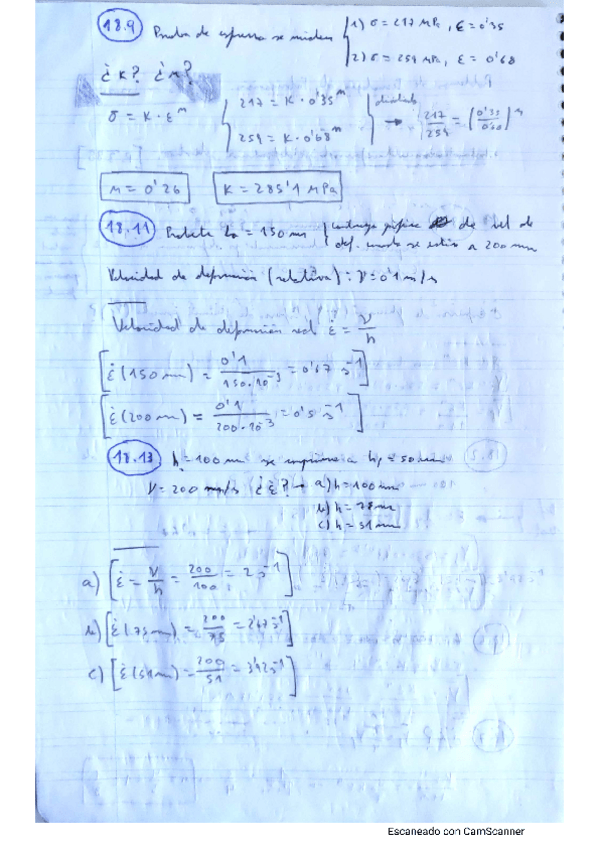 18.9 Prueba de esfuerzo se miden 1) σ = 217 MPa, ε = 0'35
2) σ = 254 MPa, ε = 0'68
¿K? ¿n?
σ = K · ε^n
217 = K · 0'35^n
254 = K · 0'68^n
→ 217/254 = (0'35/0'68)^n
n = 0'26 K = 285'1 MPa
18.11 Probeta L₀ = 150 mm de vel de
def. cuando se estira a 200 mm
Velocidad de deformación (relativa) = V = 0'1 m/s
Velocidad de deformación real ε̇ = V/h
[ε̇(150 mm) = 0'1/150·10^-3 = 0'67 s^-1]
[ε̇(200 mm) = 0'1/200·10^-3 = 0'5 s^-1]
18.13 h = 100 mm se comprime a hf = 50 mm
V = 200 mm/s ¿ε̇? → a) h = 100 mm
b) h = 75 mm
c) h = 51 mm
a) [ε̇ = V/h = 200/100 = 2 s^-1]
b) [ε̇(75 mm) = 200/75 = 2'67 s^-1]
c) [ε̇(51 mm) = 200/51 = 3'92 s^-1]
Escaneado con CamScanner